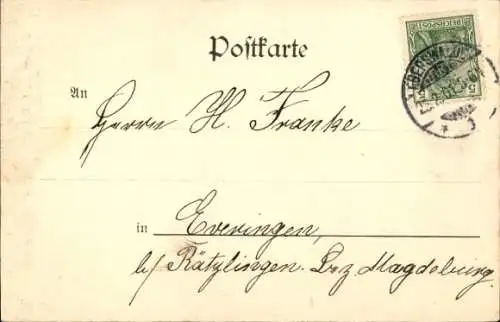 Postkarte
REICHSPOST
5
EBERSWALDE
An
Herrn H. Franke
in Everingen,
b/ Rätzlingen. Bez Magdeburg.